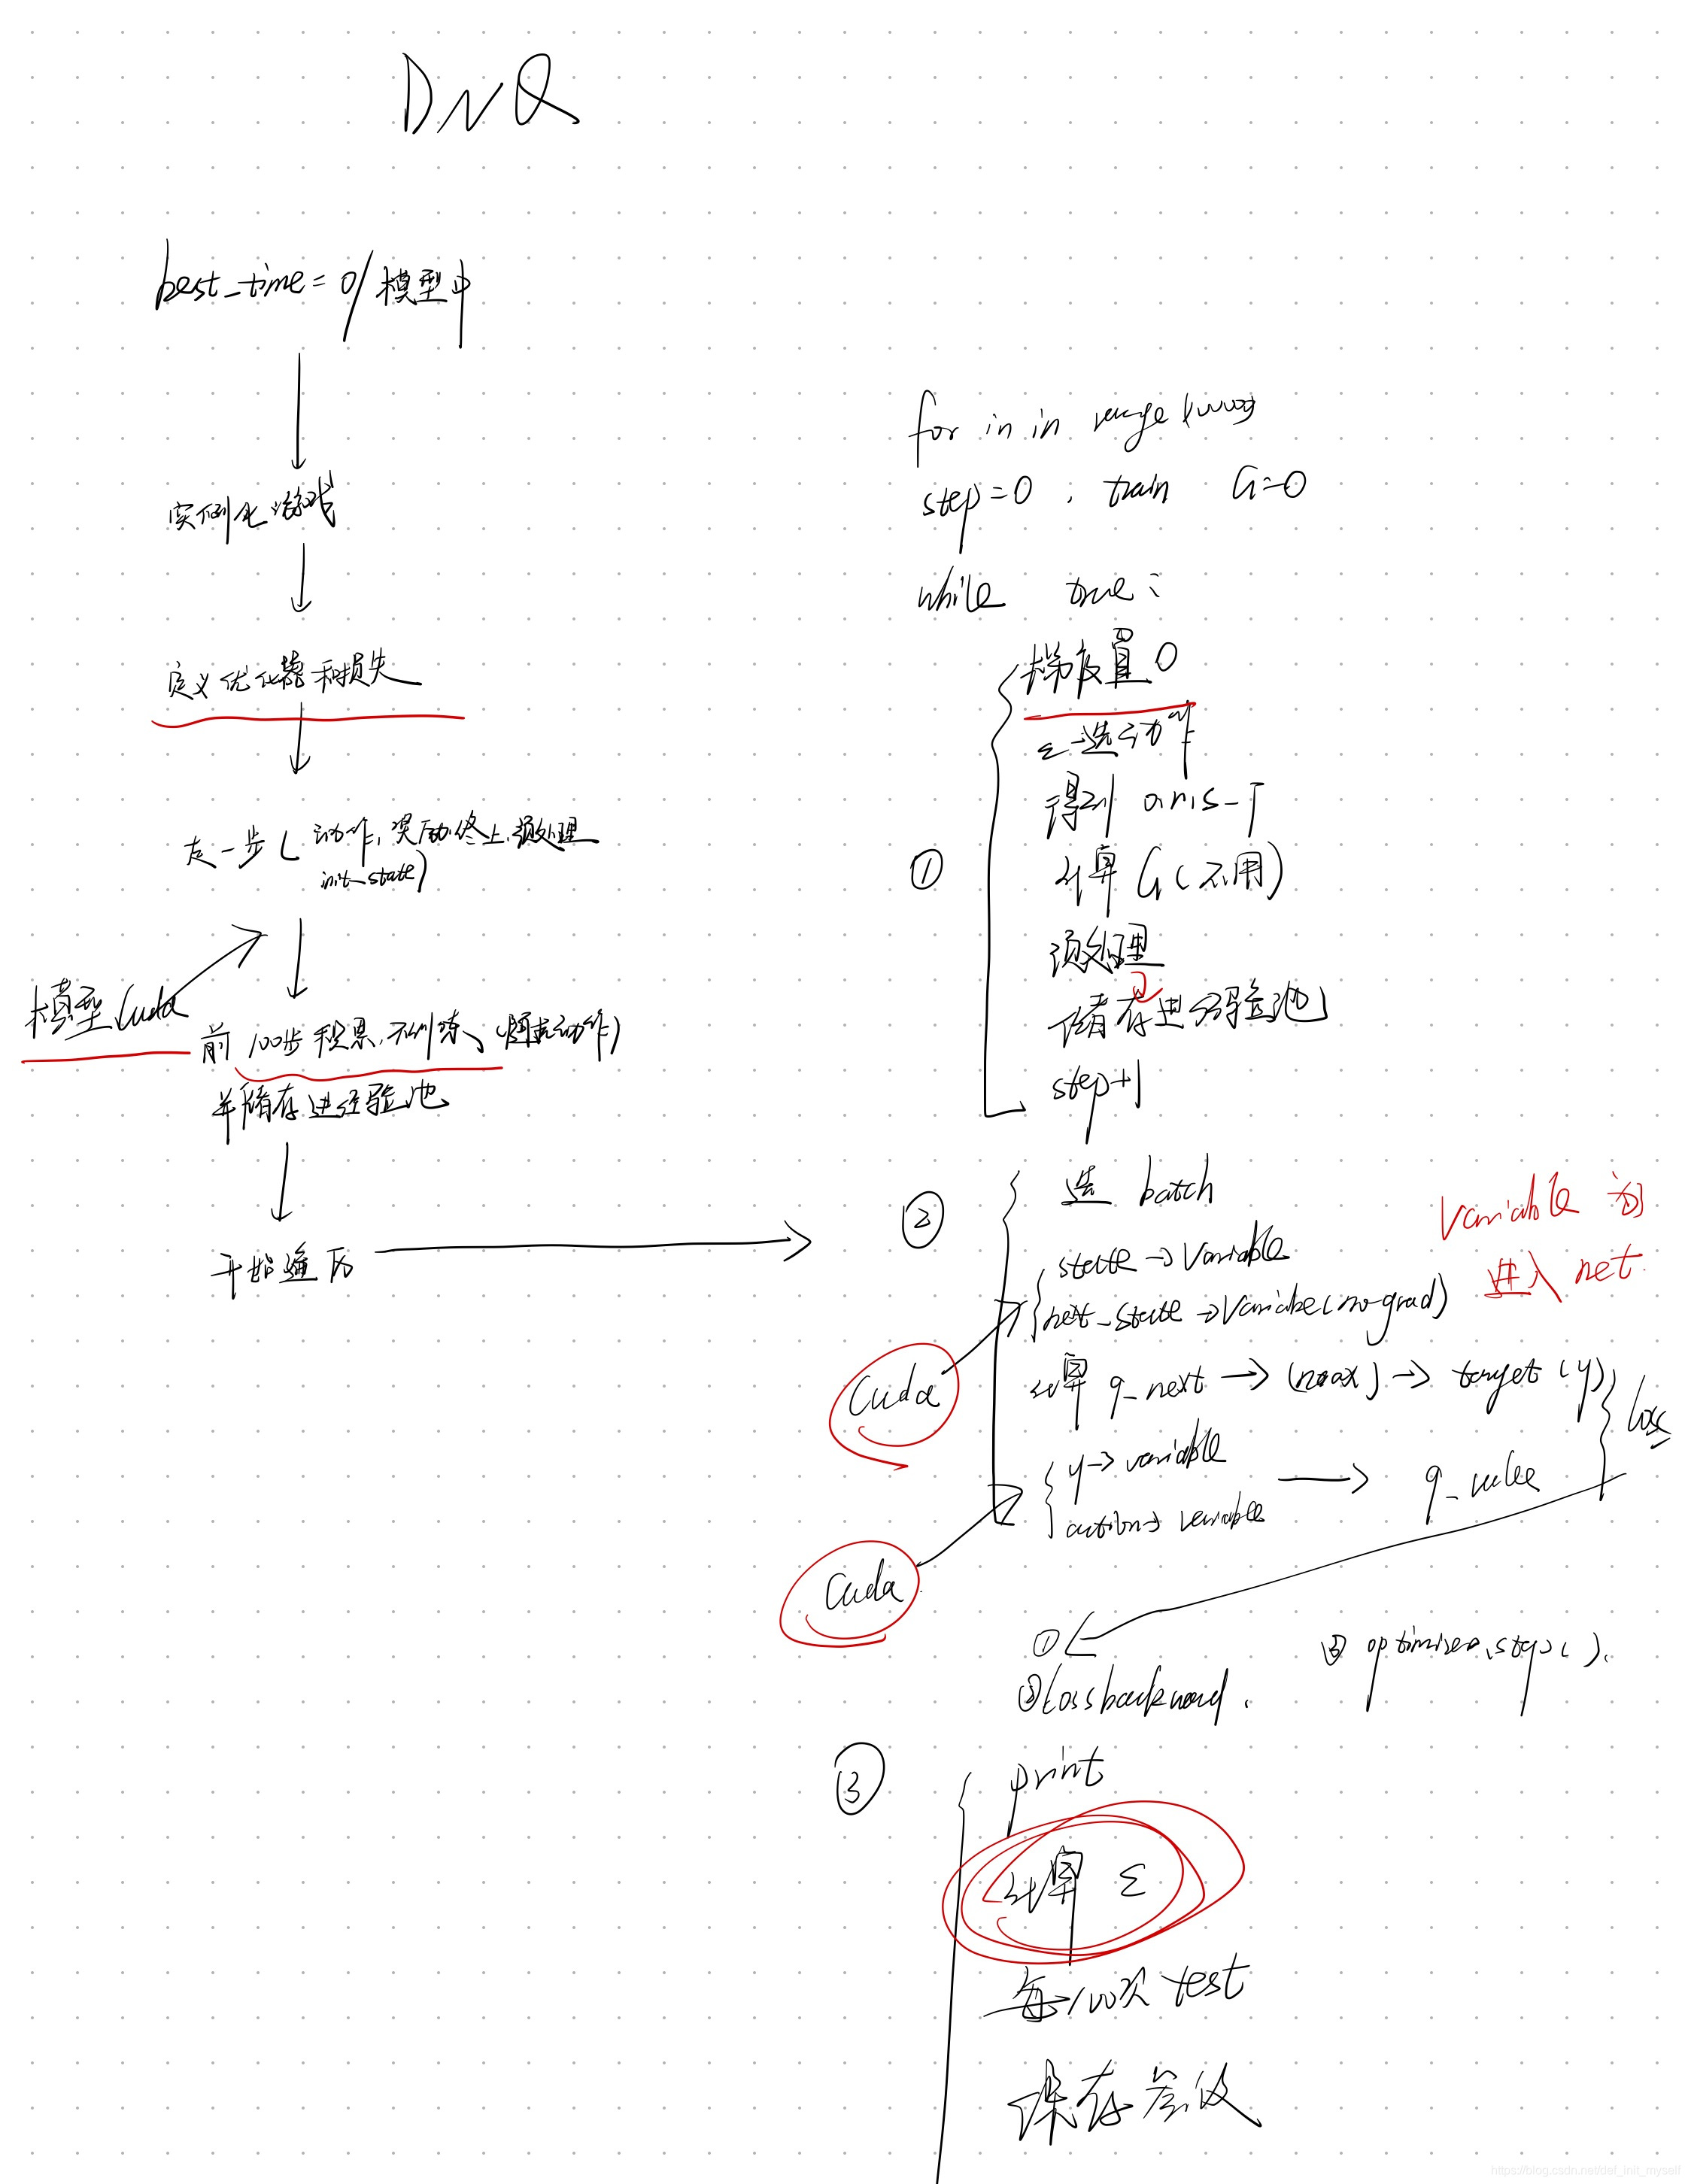 DNQ
best_time = 0/模型中
实例化游戏
定义优化器和损失
走一步(动作,奖励,终止,预处理
init_state)
模型cuda
前100步积累,不训练、(随机动作)
并储存进经验池
开始遍历
for in in range
step=0, train G=0
while true:
①
梯度置0
ε→选动作
得到
计算G(不用)
预处理
储存进经验池
step+1
②
选 batch
state→Variable
next_state→Variable(no-grad)
Variable 为
进入net
Cuda
计算 q_next→(max)→target(y)
loss
y→variable
action→variable
q_value
Cuda
①
②loss backward.
③ optimizer.step().
③
print
计算 ε
每100次 test
保存参数
https://blog.csdn.net/def_init_myself